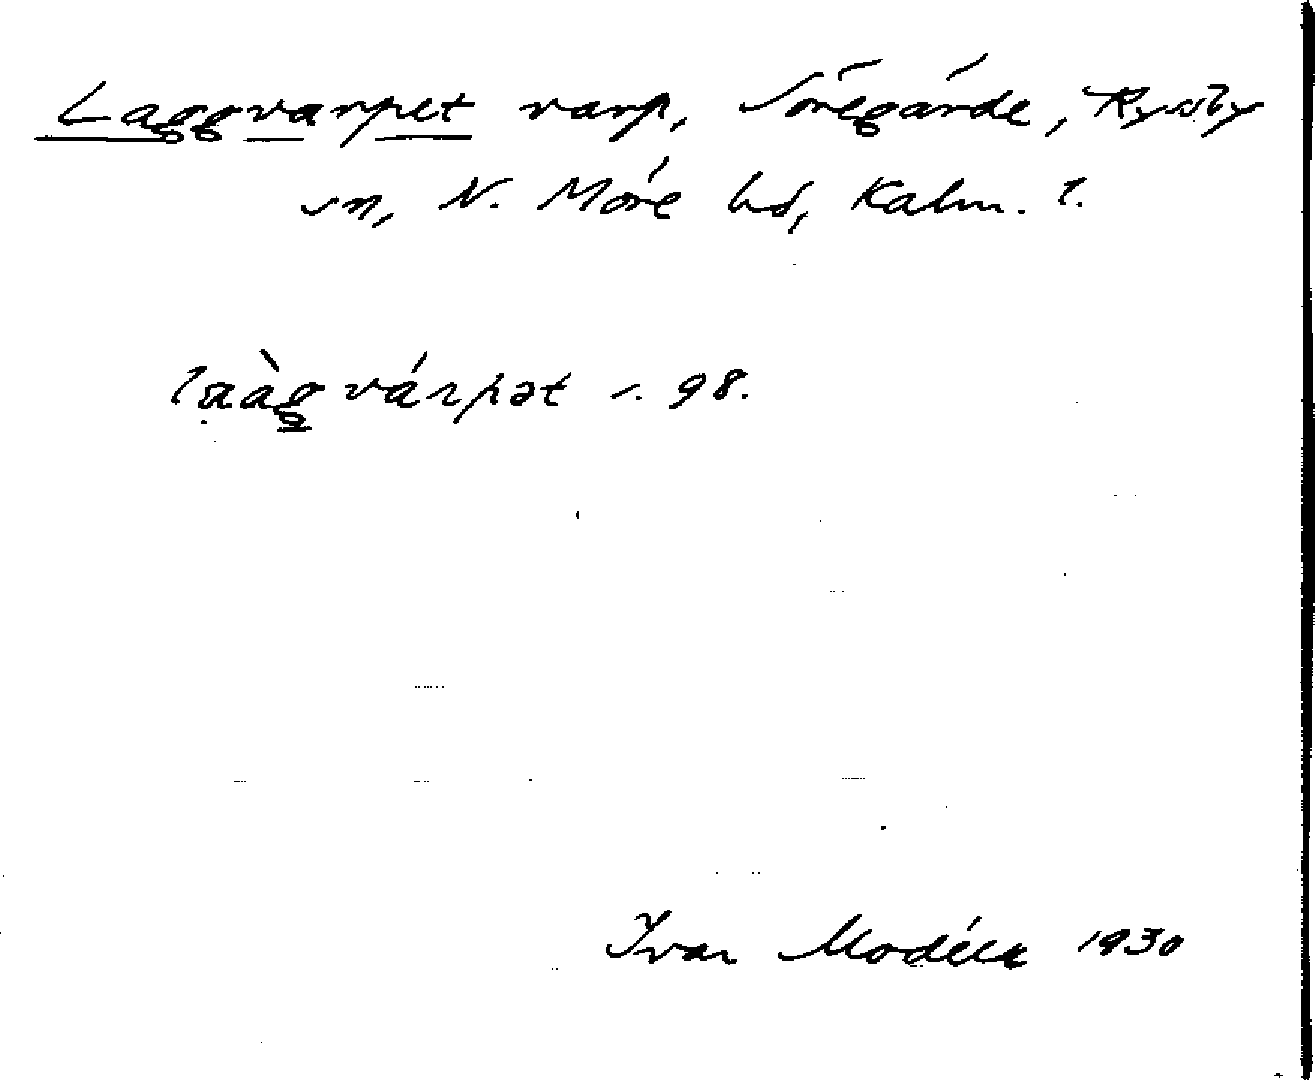 Laggvarpet varp, Söregärde, Ryssby
sn, N. Möre hd, Kalm. l.
s. 98.
Ivar Modéer 1930